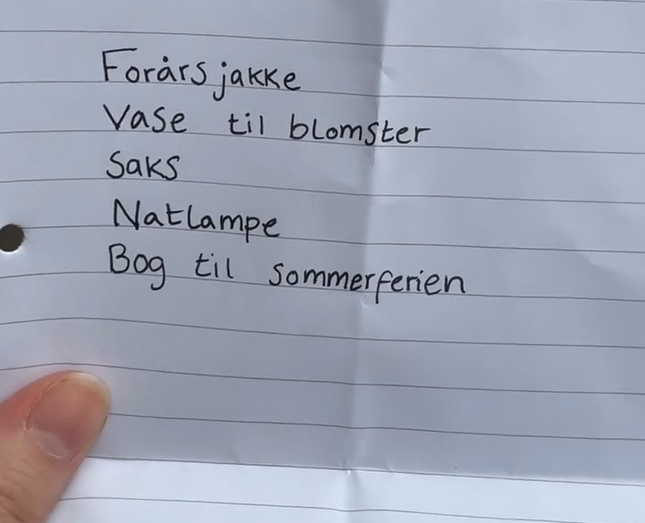 Forårsjakke
Vase til blomster
Saks
Natlampe
Bog til sommerferien